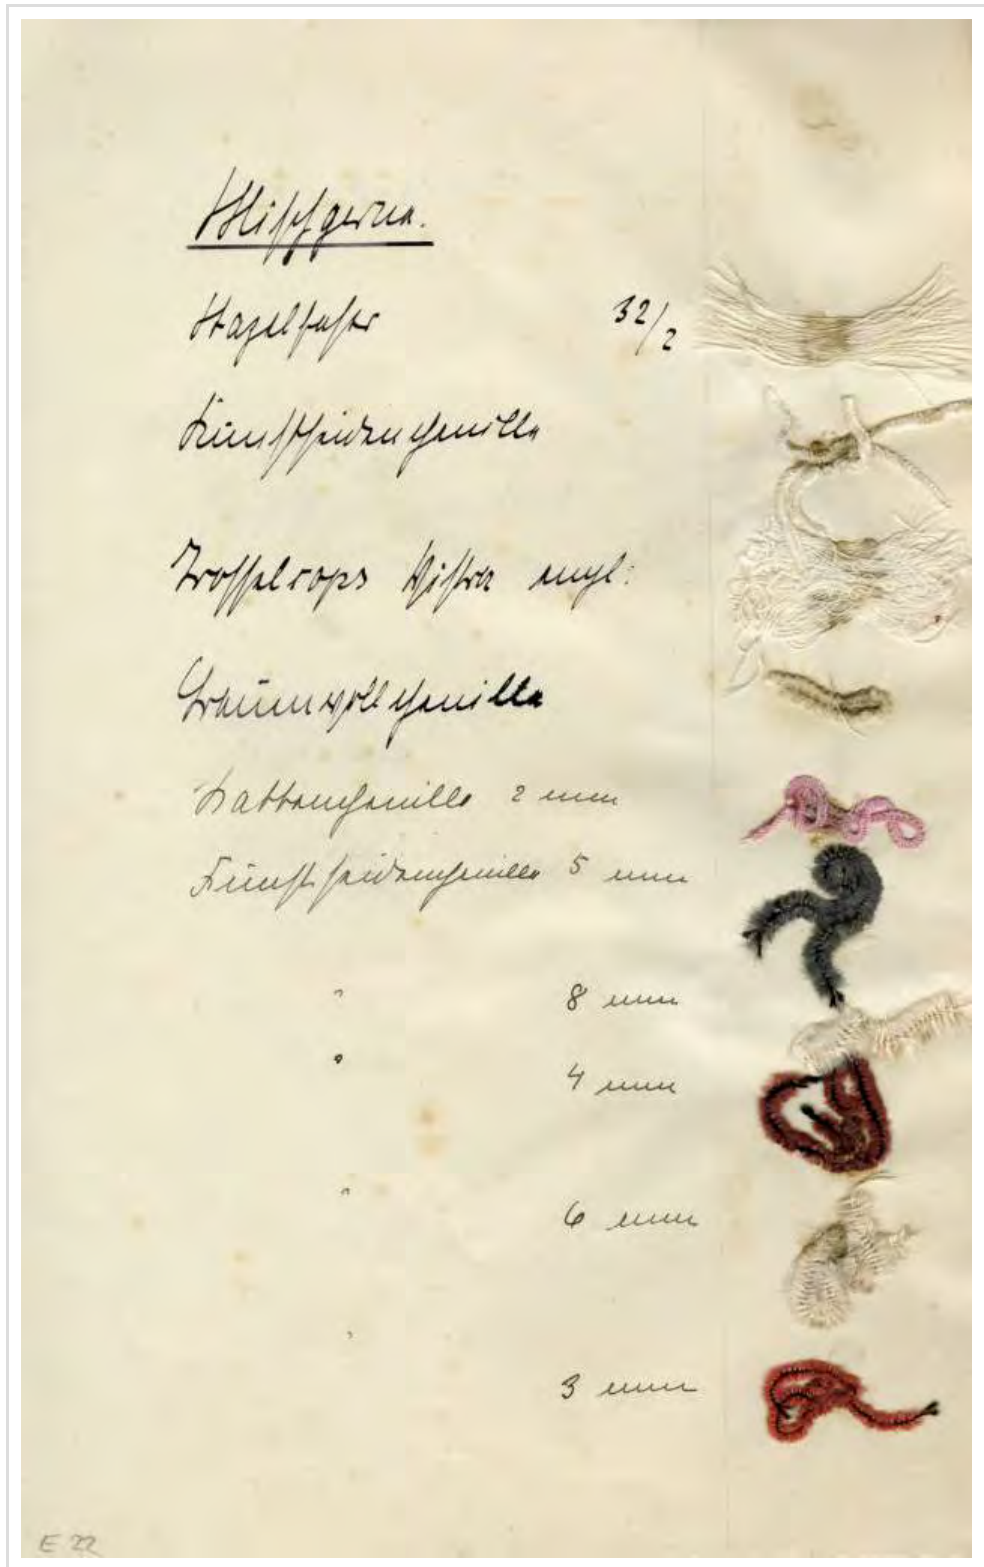 Mischgarne.
Stapelfaser 32/2
Kunstseidenchenille
Trosselcops Vistra engl:
Baumwollchenille
Kettenchenille 2 mm
Kunstseidenchenille 5 mm
" 8 mm
" 4 mm
" 6 mm
" 3 mm
E 22